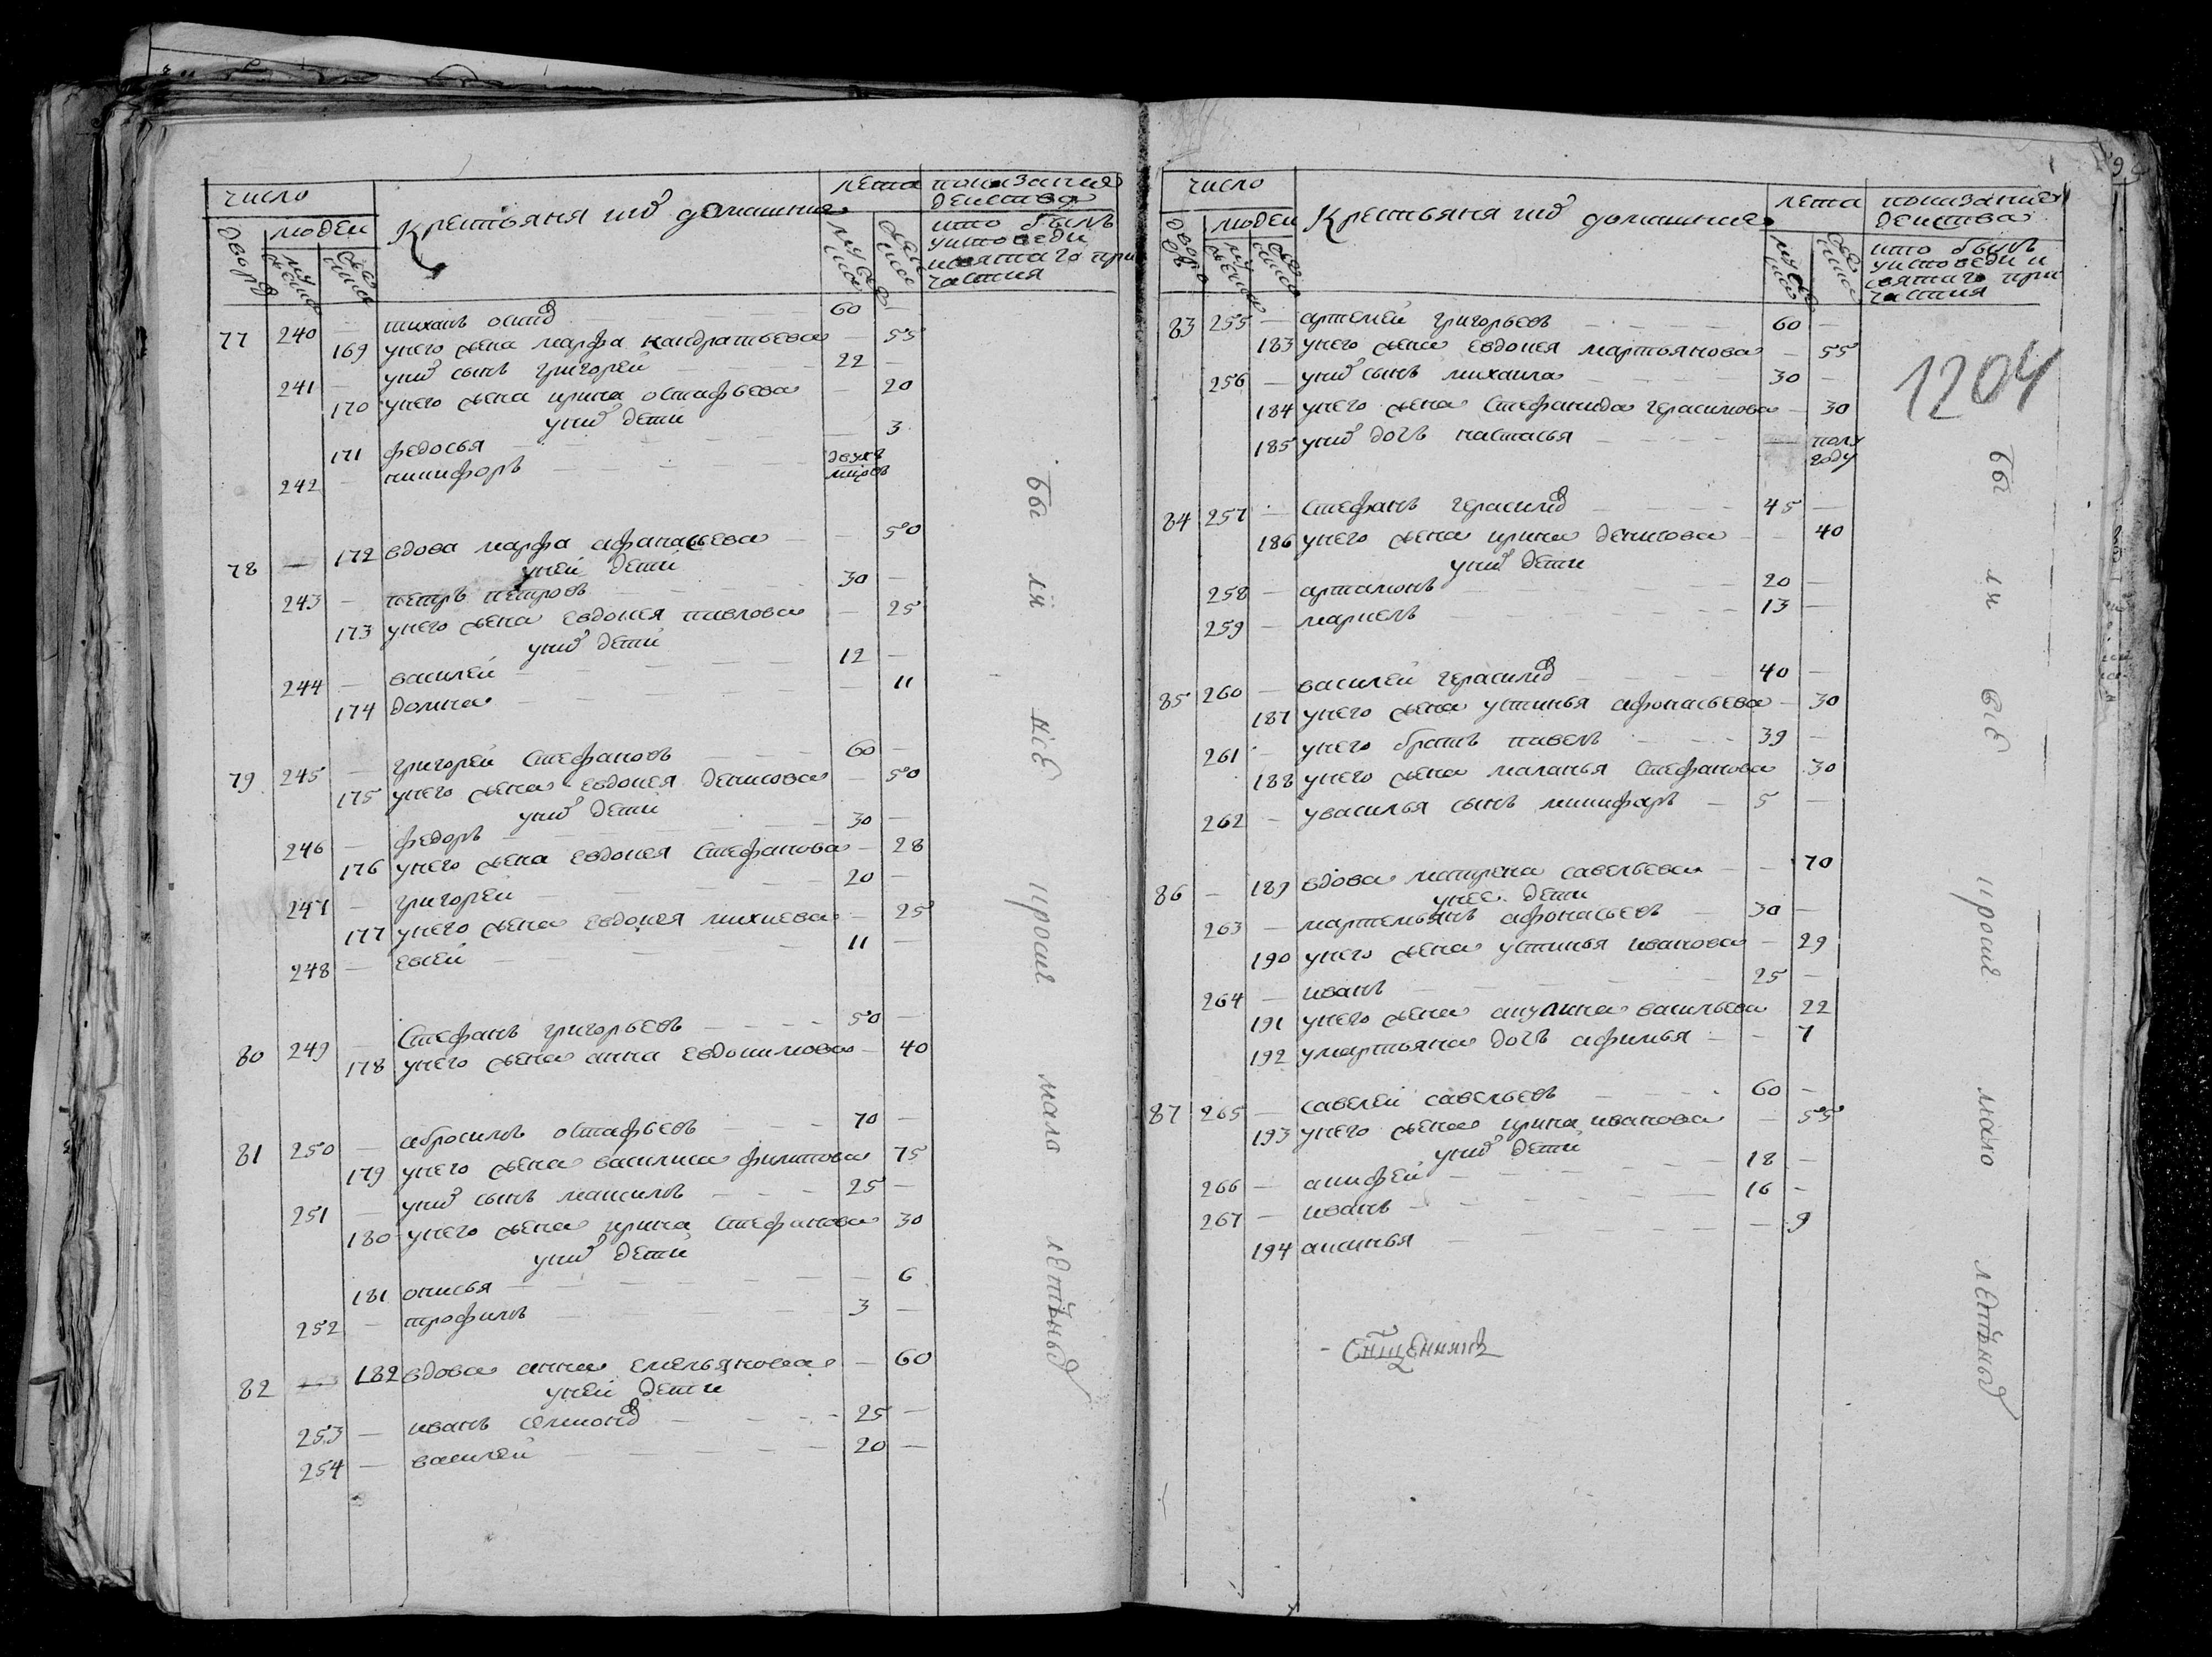 число
людей
дворовъ
мужеска
женска
Крестьяня ихъ домашния
лета
мужеска
женска
показание действа
кто былъ
уисповеди
исвятаго при
частия
77 240 — тиханъ осипов 60 —
169 унего жена марфа кандратьева — 55
241 — уних сынъ григорей 22 —
170 унего жена ирина остафьева — 20
уних дети
171 федосья — 3
242 — никифоръ двухъ
мцовъ
78 — 172 вдова марфа афанасьева — 50
уней дети
243 — петръ петровъ 30 —
173 унего жена евдокея павлова — 25
уних дети
244 — василей 12 —
174 домна — 11
79 245 — григорей Стефановъ 60 —
175 унего жена евдокея денисова — 50
уних дети
246 — федоръ 30 —
176 унего жена евдокея Стефанова — 28
247 — григорей 20 —
177 унего жена евдокея михиева — 25
248 — евсей 11 —
80 249 — Стефанъ григорьевъ 50 —
178 унего жена анна евдокимова — 40
81 250 — абросимъ остафьевъ 70 —
179 унего жена василиса филипова 75
251 — уних сынъ максимъ 25 —
180 унего жена ирина Стефанова 30
уних дети
181 онисья — 6
252 — трофимъ 3 —
82 182 вдова анна емельянова — 60
уней дети
253 — иванъ семионов 25 —
254 — василей 20 —
бы ли все проти мало летных
число
людей
дворовъ
мужеска
женска
Крестьяня ихъ домашние
лета
мужеска
женска
показание
действа
кто былъ
уисповеди и
святаго при
частия
1204
83 255 — артемей григорьевъ 60 —
183 унего жена евдокея мартьянова — 55
256 — уних сынъ михаила 30 —
184 унего жена Стефанида герасимова — 30
185 уних дочь настасья — полу
году
84 257 — Стефанъ герасимов 45 —
186 унего жена ирина денисова — 40
уних дети
258 — артамонъ 20 —
259 — маркелъ 13 —
85 260 — василей герасимов 40 —
187 унего жена устинья афонасьева — 30
261 — унего братъ павелъ 39 —
188 унего жена маланья Стефанова 30
262 — увасилья сынъ никифаръ 5 —
86 — 189 вдова матрена савельева — 70
унее дети
263 — мартемьянъ афонасьевъ 30 —
190 унего жена устинья иванова — 29
264 — иванъ 25 —
191 унего жена акулина васильева 22
192 умартьяна дочь афимья — 7
87 265 — савелей савельевъ 60 —
193 унего жена ирина иванова — 55
уних дети
266 — аникей 18 —
267 — иванъ 16 —
194 аксинья — 9
бы ли все проти мало летных
Сщенникъ